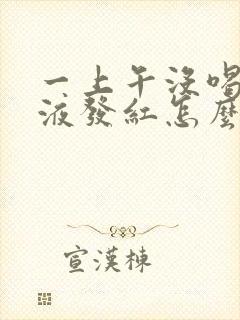 一上午没喝
液發紅怎麼
宣漢棟